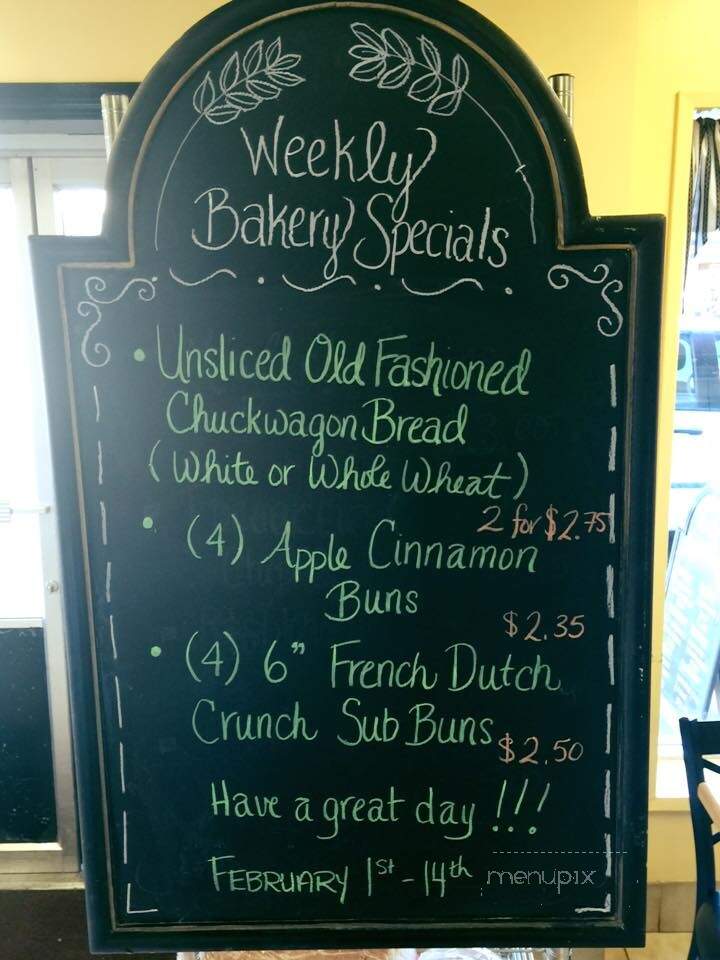 Weekly
Bakery Specials
• Unsliced Old Fashioned
Chuckwagon Bread
(White or Whole Wheat)
2 for $2.75
• (4) Apple Cinnamon
Buns
$2.35
• (4) 6" French Dutch
Crunch Sub Buns
$2.50
Have a great day !!!
FEBRUARY 1st - 14th
menupix